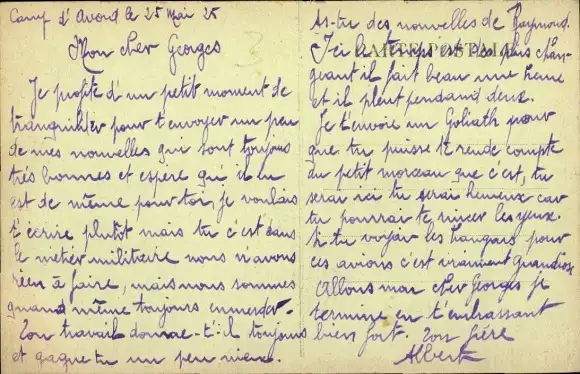 Camp d'Avord le 25 Mai 25
Mon cher Georges
Je profite d'un petit moment de
tranquilité pour t'envoyer un peu
de mes nouvelles qui sont toujours
très bonnes et espère qu'il en
est de même pour toi, je voulais
t'écrire plutôt mais tu c'est dans
le métier militaire nous n'avons
rien à faire, mais nous sommes
quand même toujours enmerder.
Ton travail donne-t'il toujours
et gagne tu un peu mieux.
As-tu des nouvelles de Raymond.
Ici le temps est des plus chan-
geant il fait beau une heure
et il pleut pendant deux.
CARTE POSTALE
Je t'envoie un Goliath pour
que tu puisse te rendre compte
du petit morceau que c'est, tu
serai ici tu serai heureux car
tu pourrai te rincer les yeux.
Si tu voyais les hangars pour
ces avions c'est vraiment grandiose
Allons mon cher Georges je
termine en t'embrassant
bien fort. Ton frère
Albert
3